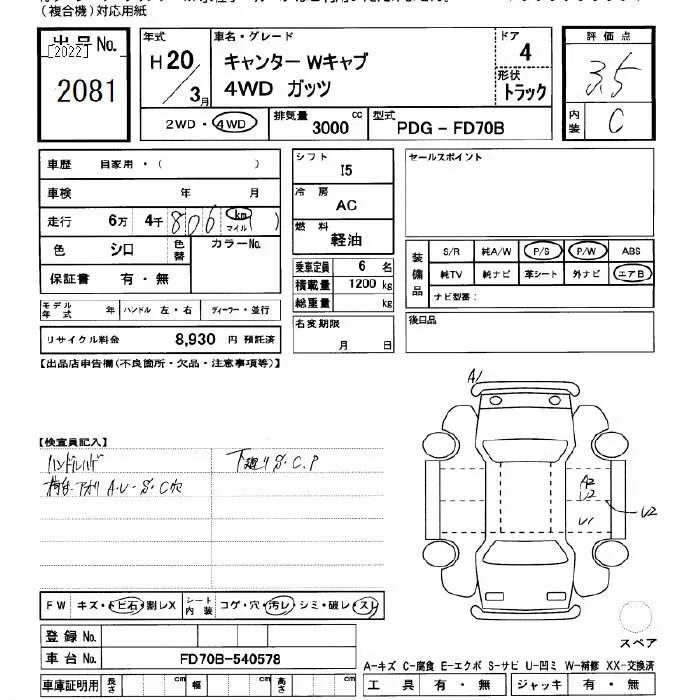 (複合機)対応用紙
出品No.
[2022]
2081
年式
H20/3月
車名・グレード
キャンター Wキャブ
4WD ガッツ
ドア
4
形状
トラック
評価点
3.5
内装
C
2WD・4WD
排気量 3000 cc
型式 PDG-FD70B
車歴 自家用・( )
車検 年 月
走行 6万 4千 806 km マイル ( )
色 シロ 色替 カラーNo.
保証書 有・無
モデル年式 年 ハンドル 左・右 ディーラー・並行
リサイクル料金 8,930 円 預託済
シフト
I5
冷房
AC
燃料
軽油
乗車定員 6 名
積載量 1200 kg
総重量 kg
名変期限
月 日
セールスポイント
装備品
S/R 純A/W P/S P/W ABS
純TV 純ナビ 革シート 外ナビ エアB
ナビ型番:
後日品
【出品店申告欄(不良箇所・欠品・注意事項等)】
A1
【検査員記入】
下廻りS・C・P
荷台アオリ A・U・S・C穴
A2
U2
U2
U1
FW キズ・トビ石・割レX シート内装 コゲ・穴・汚レ・シミ・破レ・スレ
スペア
登録No.
車台No. FD70B-540578
車庫証明用 長さ cm 幅 cm 高さ cm
A-キズ C-腐食 E-エクボ S-サビ U-凹ミ W-補修 XX-交換済
工具 有・無 ジャッキ 有・無